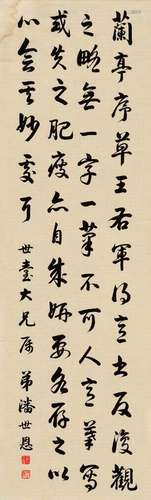 蘭亭序草王右軍得意書反復觀
之略無一字一筆不可人意筆寫
或失之肥瘦亦自成妍要各存之以
心會其妙處可 世臺大兄屬 弟潘世恩